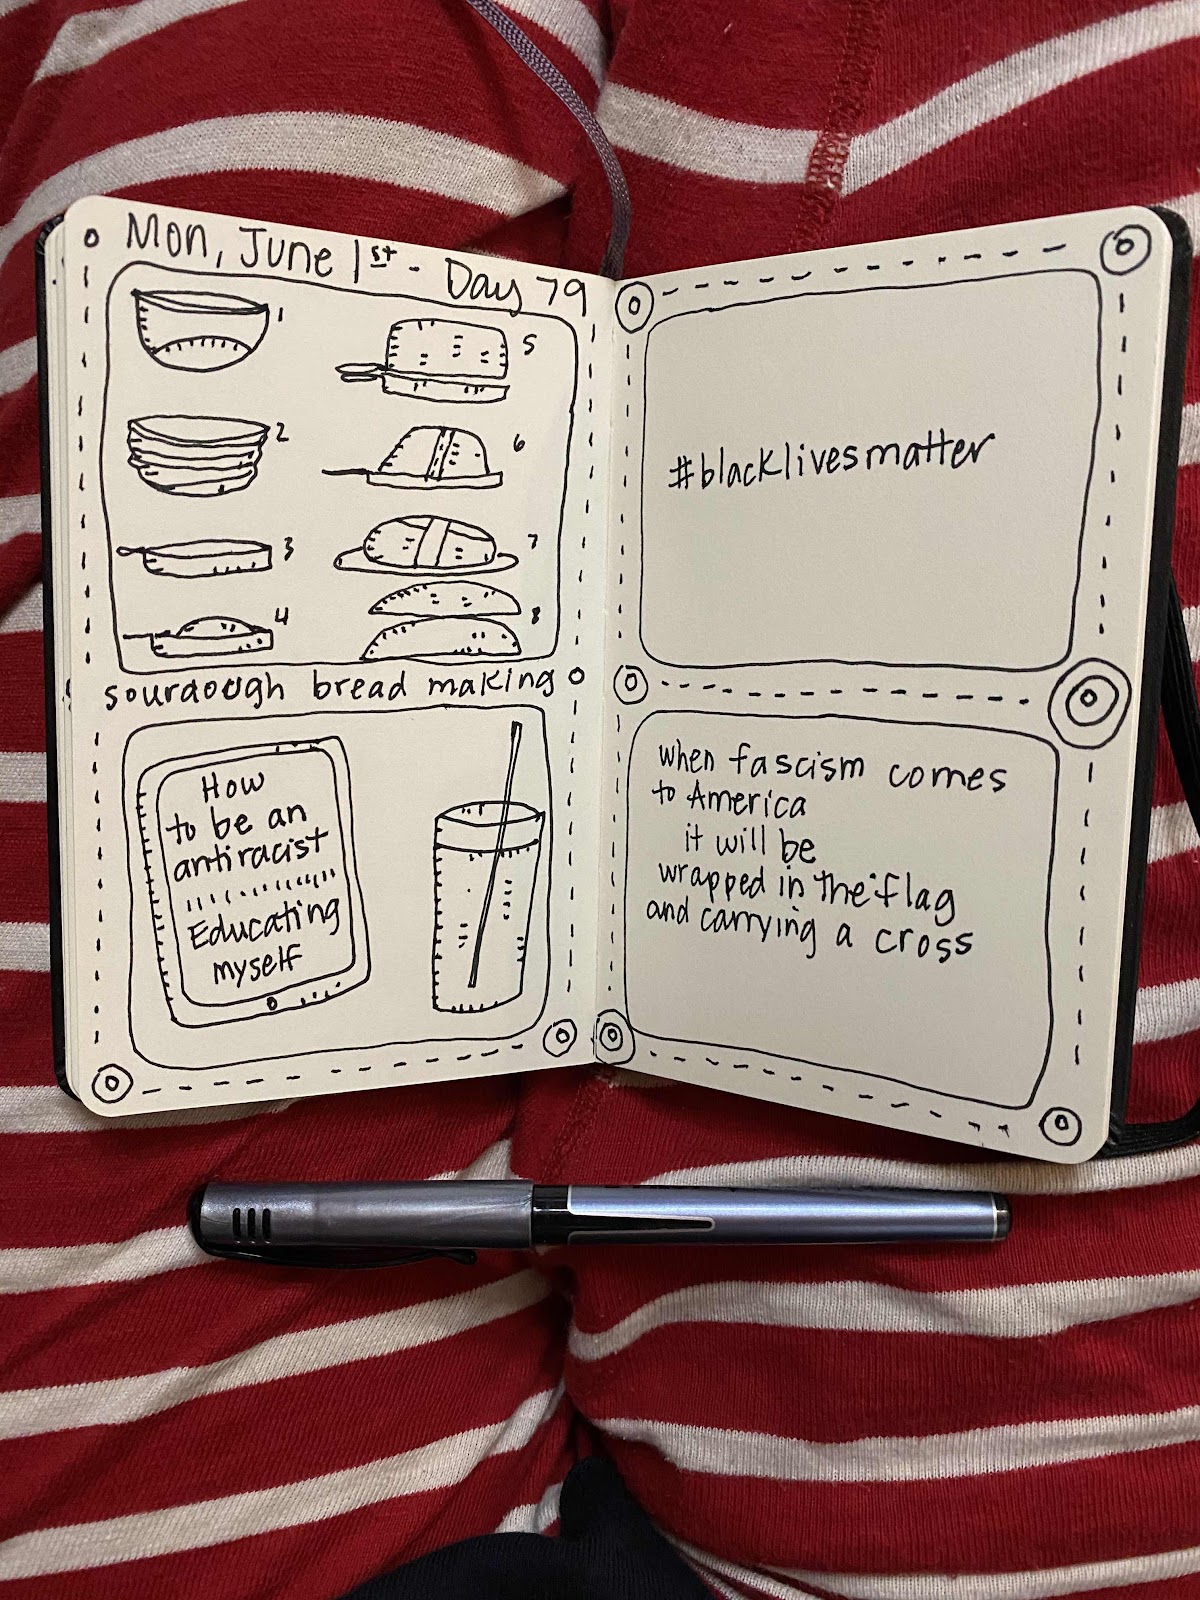 Mon, June 1st - Day 79
1
2
3
4
5
6
7
8
sourdough bread making
How
to be an
antiracist
Educating
myself
#blacklivesmatter
when fascism comes
to America
it will be
wrapped in the flag
and carrying a cross